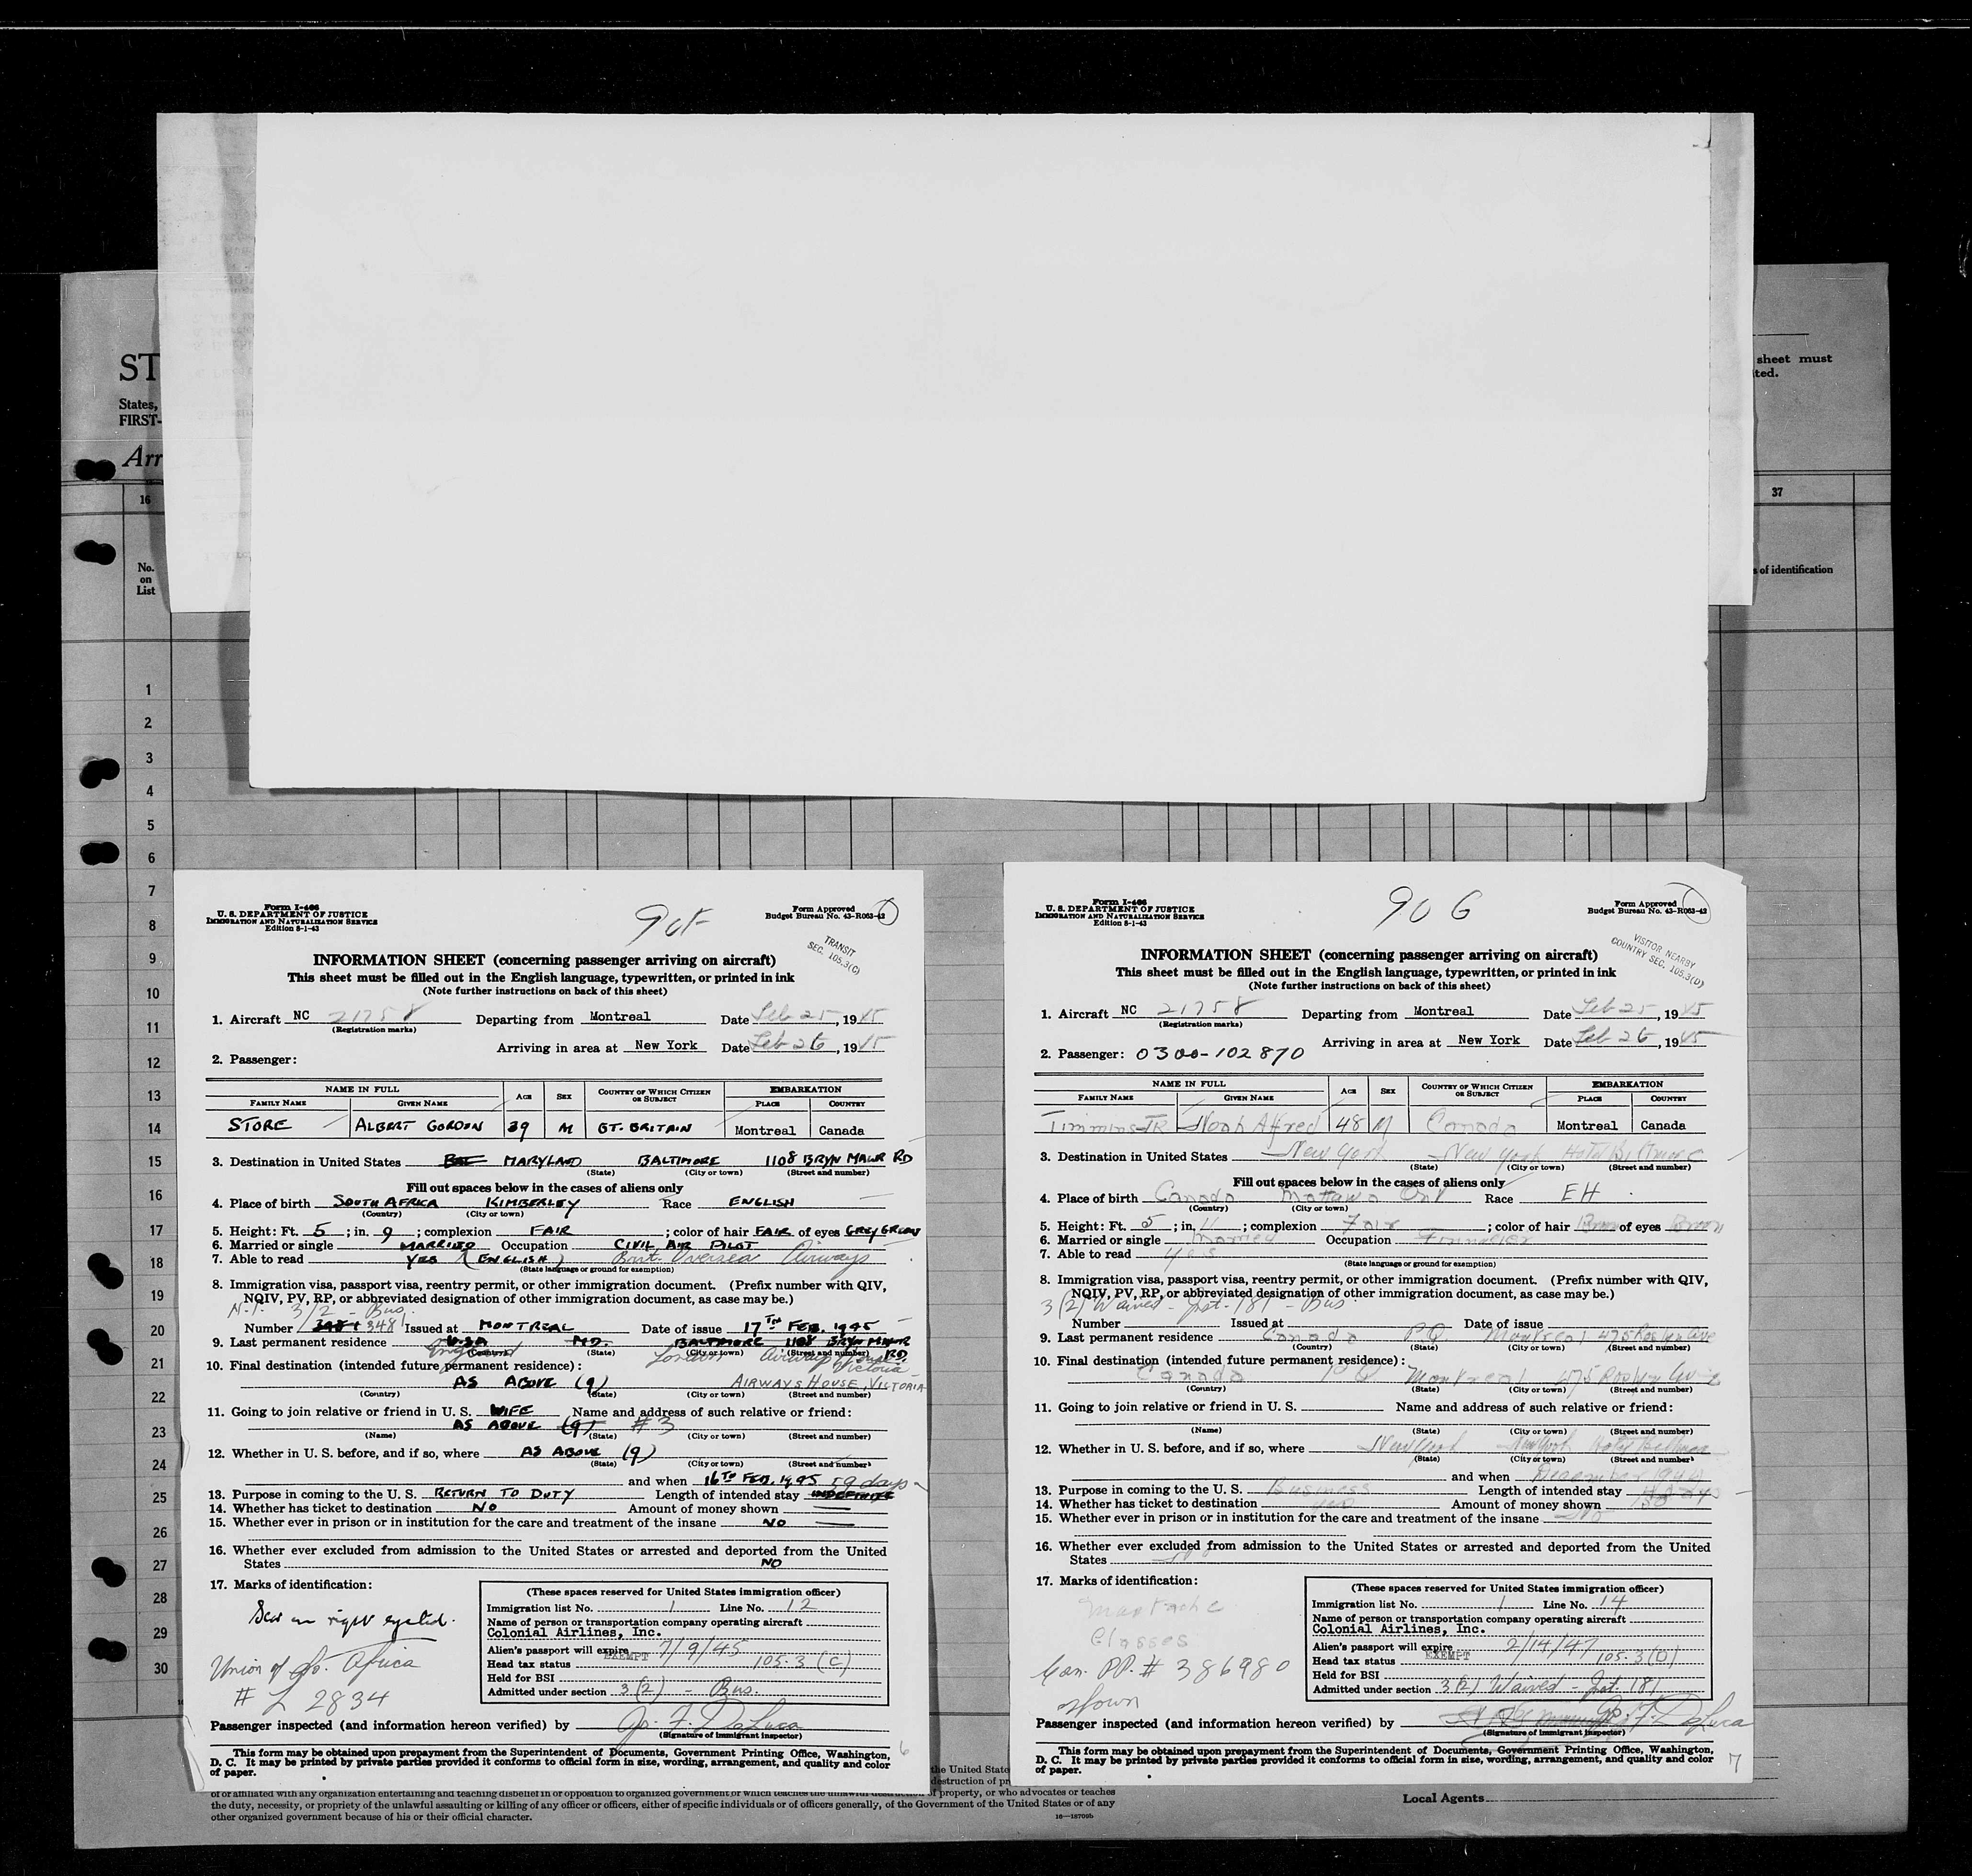 ST
States,
FIRST-
Arr
16
No.
on
List
1
2
3
4
5
6
7
8
9
10
11
12
13
14
15
16
17
18
19
20
21
22
23
24
25
26
27
28
29
30
sheet must
ited.
37
s of identification
Form I-466
U. S. DEPARTMENT OF JUSTICE
IMMIGRATION AND NATURALIZATION SERVICE
Edition 8-1-43
Form Approved
Budget Bureau No. 43-R063-42
TRANSIT
SEC. 105.3(C)
INFORMATION SHEET (concerning passenger arriving on aircraft)
This sheet must be filled out in the English language, typewritten, or printed in ink
(Note further instructions on back of this sheet)
1. Aircraft NC 21758 Departing from Montreal Date Feb 25, 1945
(Registration marks)
Arriving in area at New York Date Feb 26, 1945
2. Passenger:
NAME IN FULL AGE SEX COUNTRY OF WHICH CITIZEN OR SUBJECT EMBARKATION
FAMILY NAME GIVEN NAME PLACE COUNTRY
STORE ALBERT GORDON 39 M GT. BRITAIN Montreal Canada
3. Destination in United States MARYLAND BALTIMORE 1108 BRYN MAWR RD
(State) (City or town) (Street and number)
Fill out spaces below in the cases of aliens only
4. Place of birth SOUTH AFRICA KIMBERLEY Race ENGLISH
(Country) (City or town)
5. Height: Ft. 5; in. 9; complexion FAIR; color of hair FAIR of eyes GREY GREEN
6. Married or single MARRIED Occupation CIVIL AIR PILOT
7. Able to read YES (ENGLISH) Brit Oversea Airways
(State language or ground for exemption)
8. Immigration visa, passport visa, reentry permit, or other immigration document. (Prefix number with QIV,
NQIV, PV, RP, or abbreviated designation of other immigration document, as case may be.)
3/2 - Bus.
Number 3481 Issued at MONTREAL Date of issue 17TH FEB. 1945
9. Last permanent residence U.S.A MD. BALTIMORE 1108 BRYN MAWR RD.
England London Airways House Victoria
(Country) (State) (City or town) (Street and number)
10. Final destination (intended future permanent residence):
AS ABOVE (9) AIRWAYS HOUSE, VICTORIA
(Country) (State) (City or town) (Street and number)
11. Going to join relative or friend in U. S. WIFE Name and address of such relative or friend:
AS ABOVE (9) #3
(Name) (State) (City or town) (Street and number)
12. Whether in U. S. before, and if so, where AS ABOVE (9)
(State) (City or town) (Street and number)
and when 16TH FEB. 1945 59 days
13. Purpose in coming to the U. S. RETURN TO DUTY Length of intended stay INDEFINITE
14. Whether has ticket to destination NO Amount of money shown
15. Whether ever in prison or in institution for the care and treatment of the insane NO
16. Whether ever excluded from admission to the United States or arrested and deported from the United
States NO
17. Marks of identification:
Scar on right eyelid.
Union of So. Africa
# L 2834
(These spaces reserved for United States immigration officer)
Immigration list No. 1 Line No. 12
Name of person or transportation company operating aircraft
Colonial Airlines, Inc.
Alien's passport will expire 7/9/45
Head tax status EXEMPT 105.3 (C)
Held for BSI
Admitted under section 3(2) - Bus.
Passenger inspected (and information hereon verified) by Jos. F. DeLuca
(Signature of immigrant inspector)
This form may be obtained upon prepayment from the Superintendent of Documents, Government Printing Office, Washington,
D. C. It may be printed by private parties provided it conforms to official form in size, wording, arrangement, and quality and color
of paper.
6
Form I-466
U. S. DEPARTMENT OF JUSTICE
IMMIGRATION AND NATURALIZATION SERVICE
Edition 8-1-43
906
Form Approved
Budget Bureau No. 43-R063-42
VISITOR NEARBY
COUNTRY SEC. 105.3(D)
INFORMATION SHEET (concerning passenger arriving on aircraft)
This sheet must be filled out in the English language, typewritten, or printed in ink
(Note further instructions on back of this sheet)
1. Aircraft NC 21758 Departing from Montreal Date Feb 25, 1945
(Registration marks)
Arriving in area at New York Date Feb 26, 1945
2. Passenger: 0300-102870
NAME IN FULL AGE SEX COUNTRY OF WHICH CITIZEN OR SUBJECT EMBARKATION
FAMILY NAME GIVEN NAME PLACE COUNTRY
Timmins JR Noah Alfred 48 M Canada Montreal Canada
3. Destination in United States New York New York Hotel Biltmore
(State) (City or town) (Street and number)
Fill out spaces below in the cases of aliens only
4. Place of birth Canada Mattawa Ont Race EH
(Country) (City or town)
5. Height: Ft. 5; in. 11; complexion Fair; color of hair Brown of eyes Brown
6. Married or single Married Occupation Financier
7. Able to read yes
(State language or ground for exemption)
8. Immigration visa, passport visa, reentry permit, or other immigration document. (Prefix number with QIV,
NQIV, PV, RP, or abbreviated designation of other immigration document, as case may be.)
3(2) Waived - Jnt. 181 - Bus.
Number Issued at Date of issue
9. Last permanent residence Canada P.Q. Montreal, 475 Roslyn Ave
(Country) (State) (City or town) (Street and number)
10. Final destination (intended future permanent residence):
Canada PQ Montreal 475 Roslyn Ave
(Country) (State) (City or town) (Street and number)
11. Going to join relative or friend in U. S. Name and address of such relative or friend:
(Name) (State) (City or town) (Street and number)
12. Whether in U. S. before, and if so, where New York New York Hotel
(State) (City or town) (Street and number)
and when December 1944
13. Purpose in coming to the U. S. Business Length of intended stay
14. Whether has ticket to destination yes Amount of money shown
15. Whether ever in prison or in institution for the care and treatment of the insane No
16. Whether ever excluded from admission to the United States or arrested and deported from the United
States No
17. Marks of identification:
Mustache
Glasses
Can. PP. # 386980
shown
(These spaces reserved for United States immigration officer)
Immigration list No. 1 Line No. 14
Name of person or transportation company operating aircraft
Colonial Airlines, Inc.
Alien's passport will expire 2/14/47
Head tax status EXEMPT 105.3(D)
Held for BSI
Admitted under section 3(2) Waived - Jnt. 181
Passenger inspected (and information hereon verified) by Jos. F. DeLuca
(Signature of immigrant inspector)
This form may be obtained upon prepayment from the Superintendent of Documents, Government Printing Office, Washington,
D. C. It may be printed by private parties provided it conforms to official form in size, wording, arrangement, and quality and color
of paper.
7
the United State
destruction of pr
of or affiliated with any organization entertaining and teaching disbelief in or opposition to organized government, or which teaches the unlawful destruction of property, or who advocates or teaches
the duty, necessity, or propriety of the unlawful assaulting or killing of any officer or officers, either of specific individuals or of officers generally, of the Government of the United States or of any
other organized government because of his or their official character.
16—18709b
Local Agents